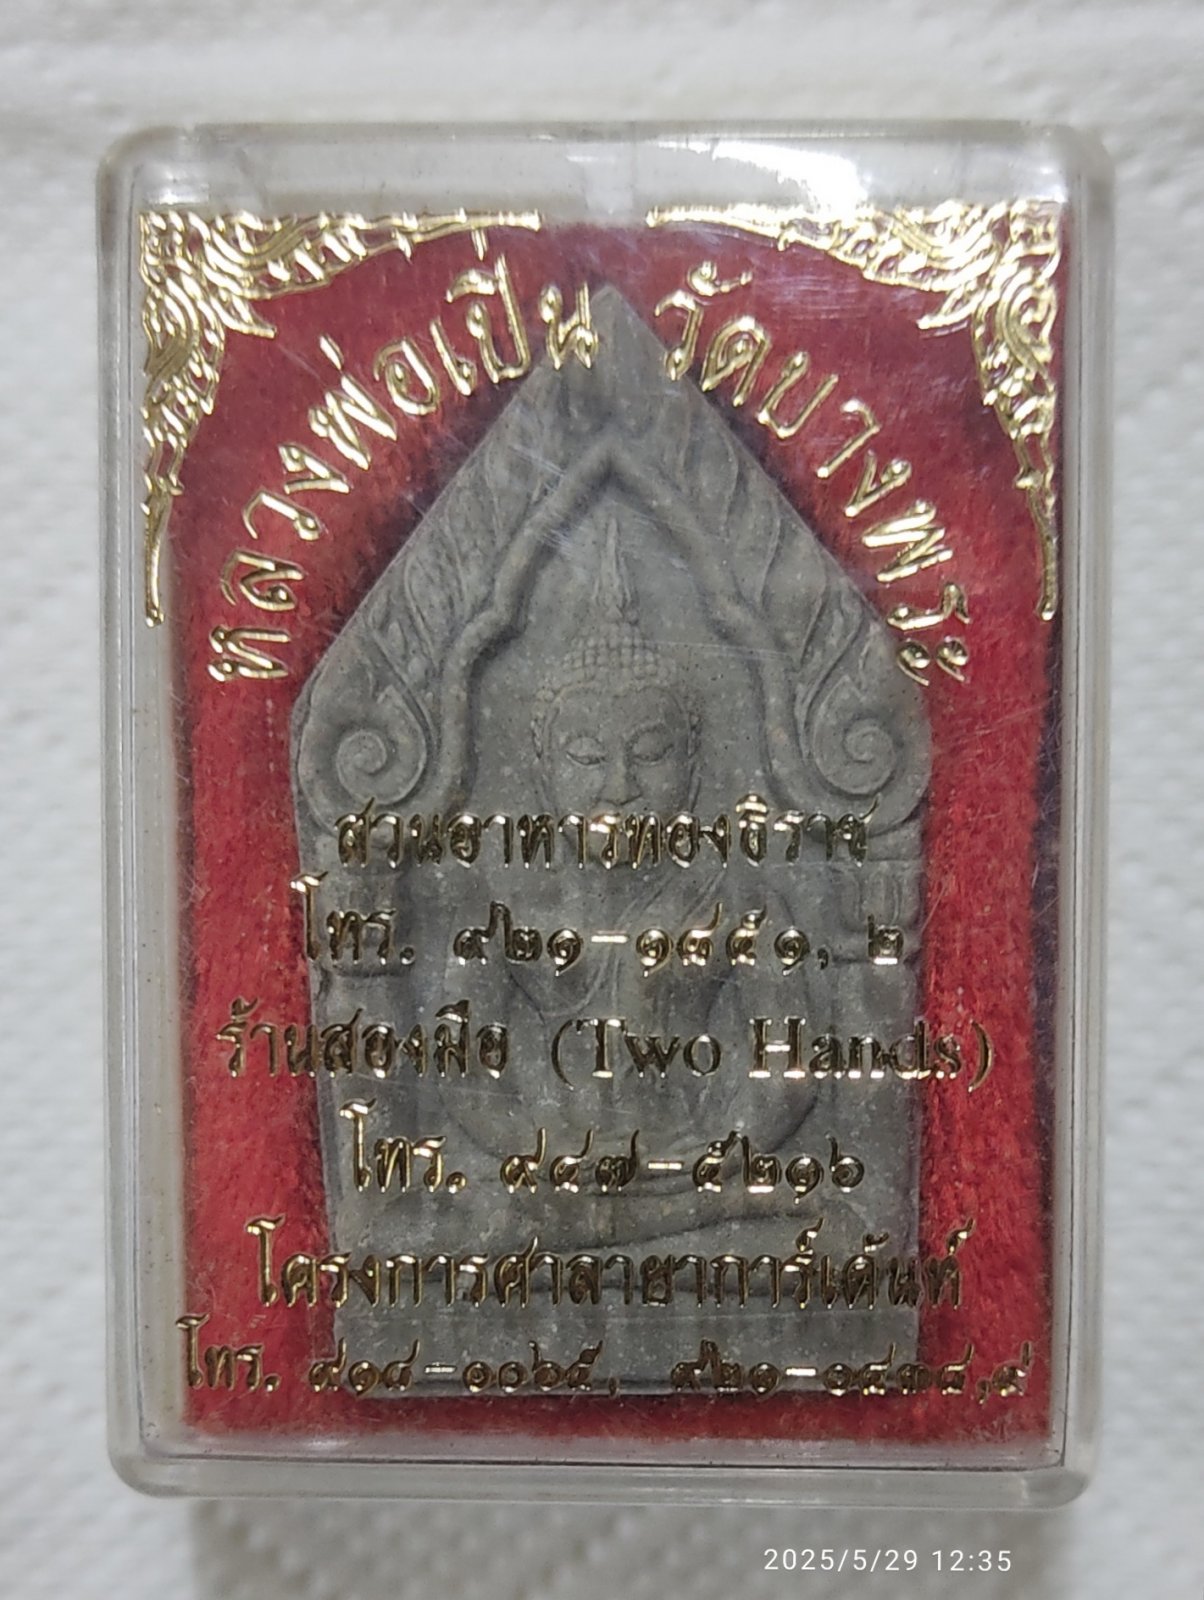 หลวงพ่อเปิ่น วัดบางพระ
สวนอาหารทองธิราช
โทร. ๙๒๑-๑๘๕๑, ๒
ร้านสองมือ (Two Hands)
โทร. ๙๔๗-๕๒๑๖
โครงการศาลายาการ์เด้นท์
โทร. ๘๑๘-๐๐๖๕, ๙๒๑-๑๘๓๘,๙
2025/5/29 12:35